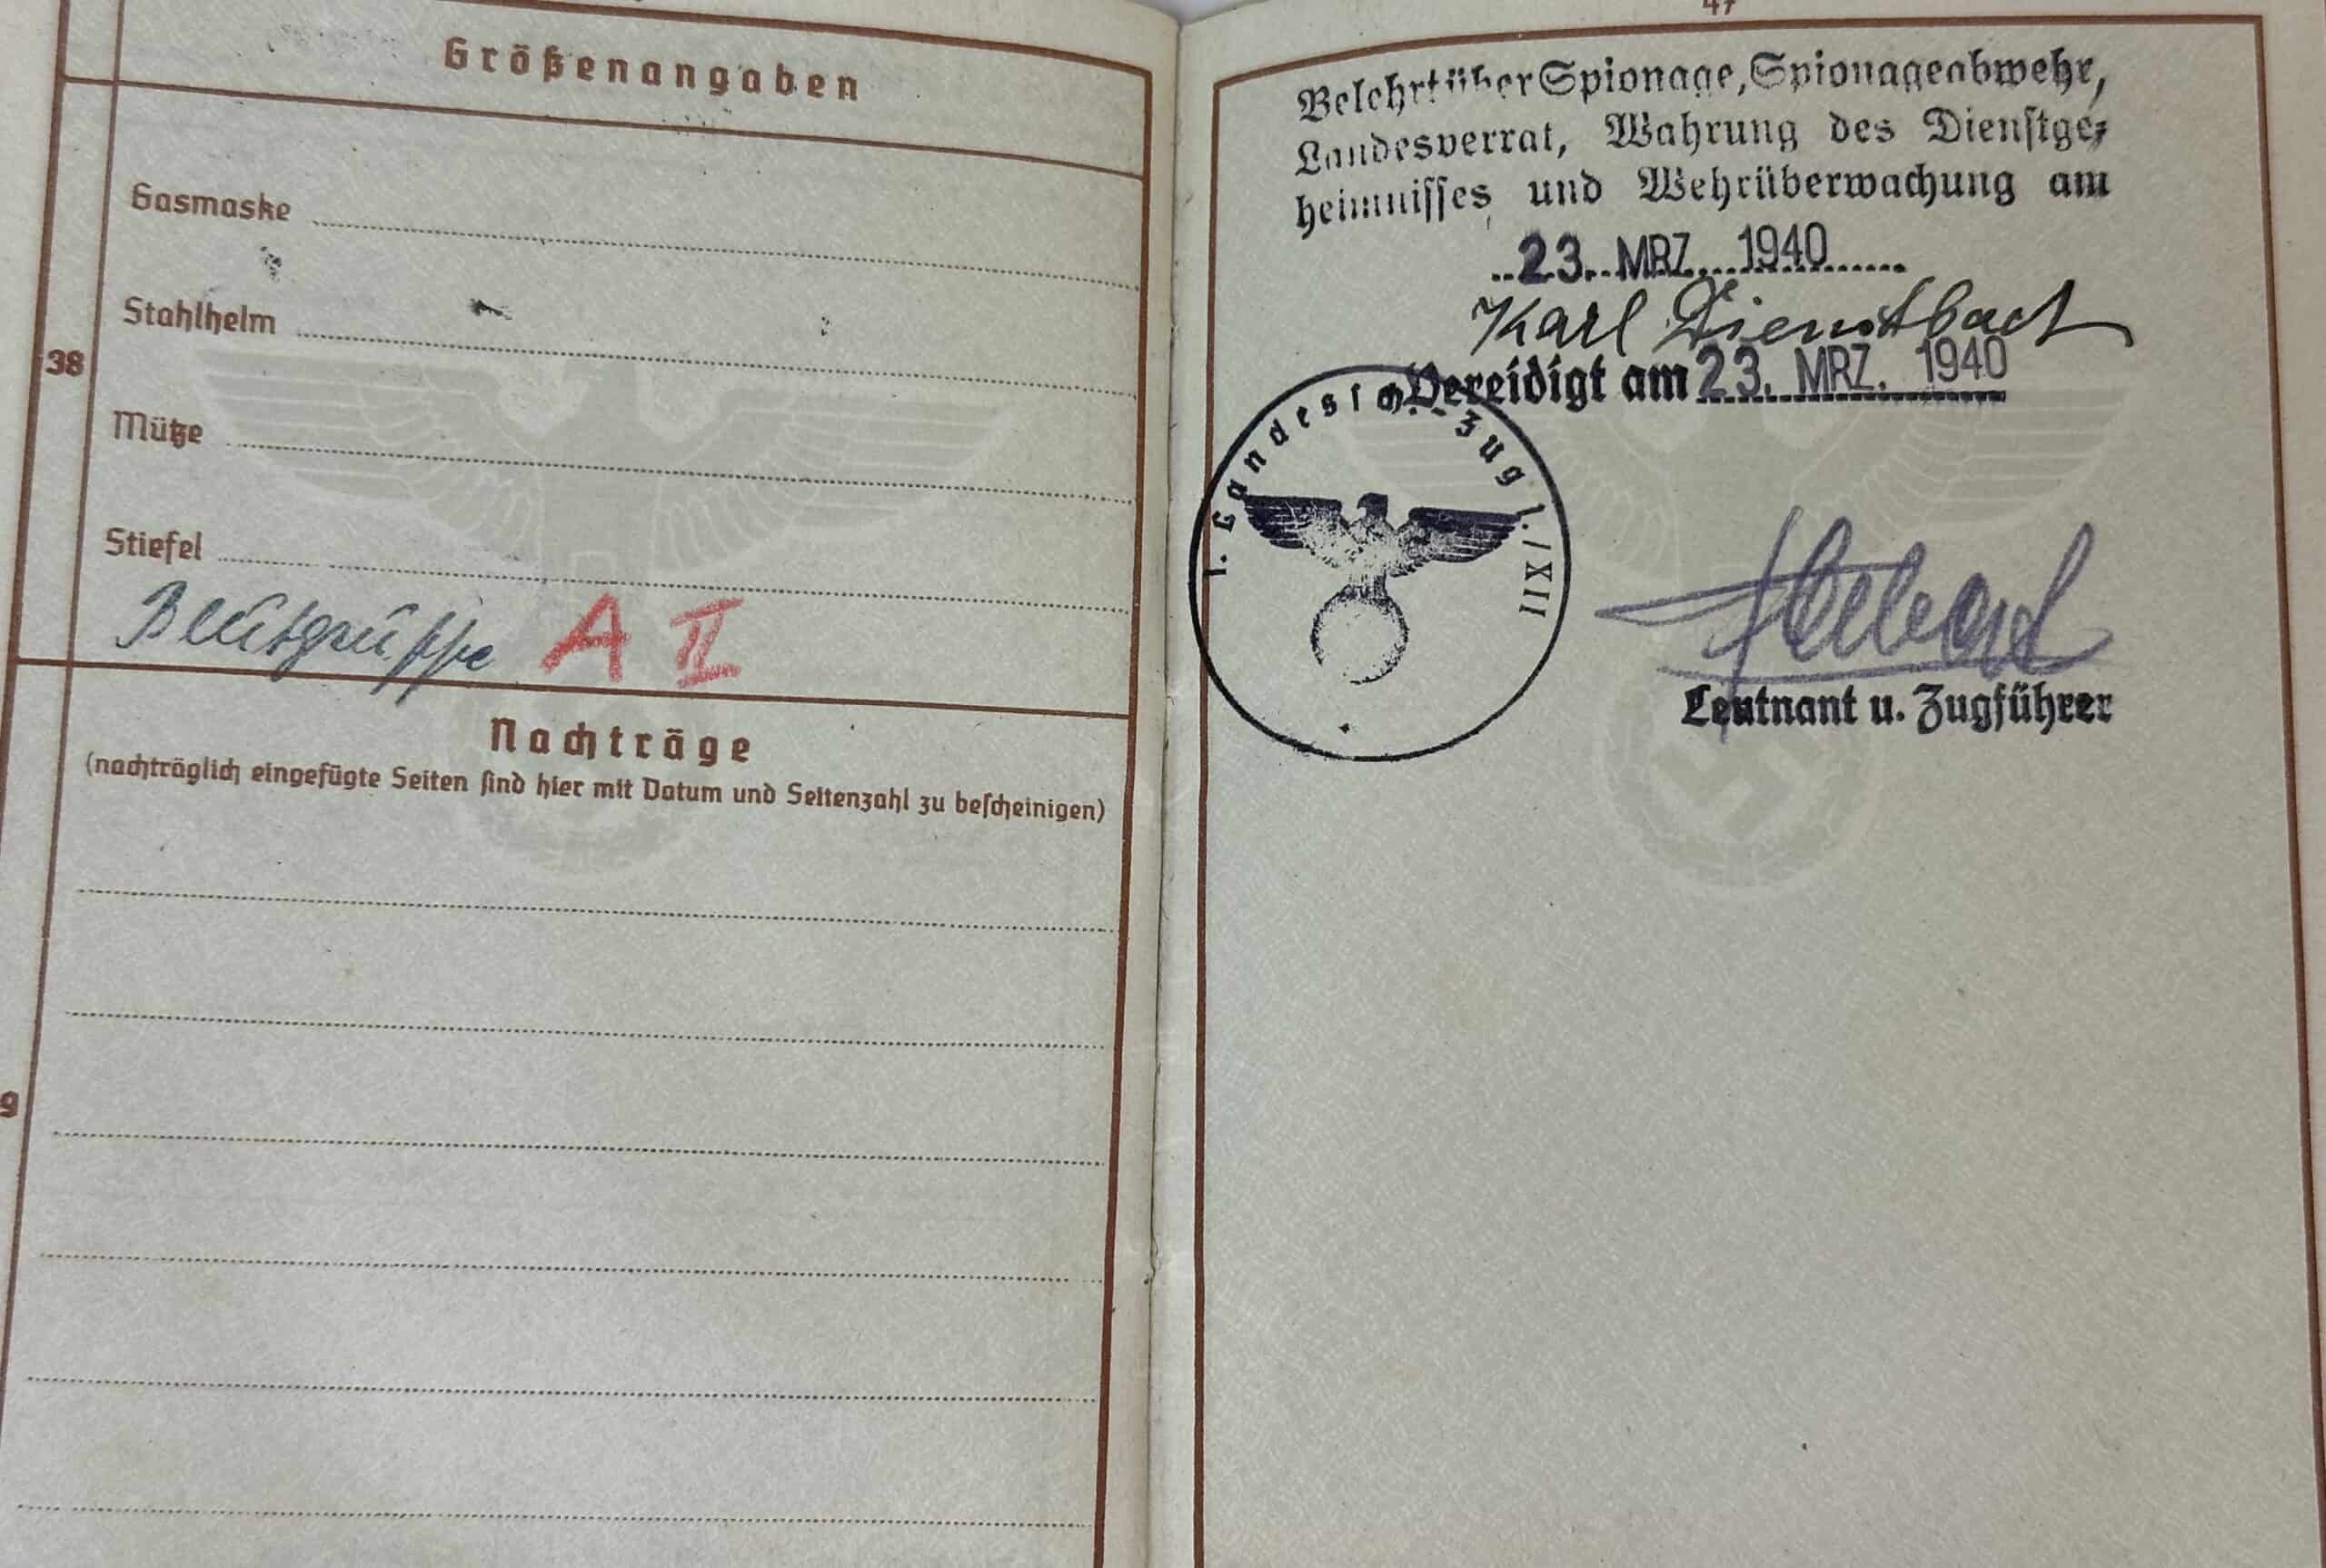 Größenangaben
Gasmaske
Stahlhelm
38
Mütze
Stiefel
Blutgruppe A II
Nachträge
(nachträglich eingefügte Seiten sind hier mit Datum und Seitenzahl zu bescheinigen)
9
47
Belehrt über Spionage, Spionageabwehr,
Landesverrat, Wahrung des Dienstge-
heimnisses und Wehrüberwachung am
23. MRZ. 1940
Karl Dienstbach
Vereidigt am 23. MRZ. 1940
1. Landessch.-Zug 1./XII
Leutnant u. Zugführer